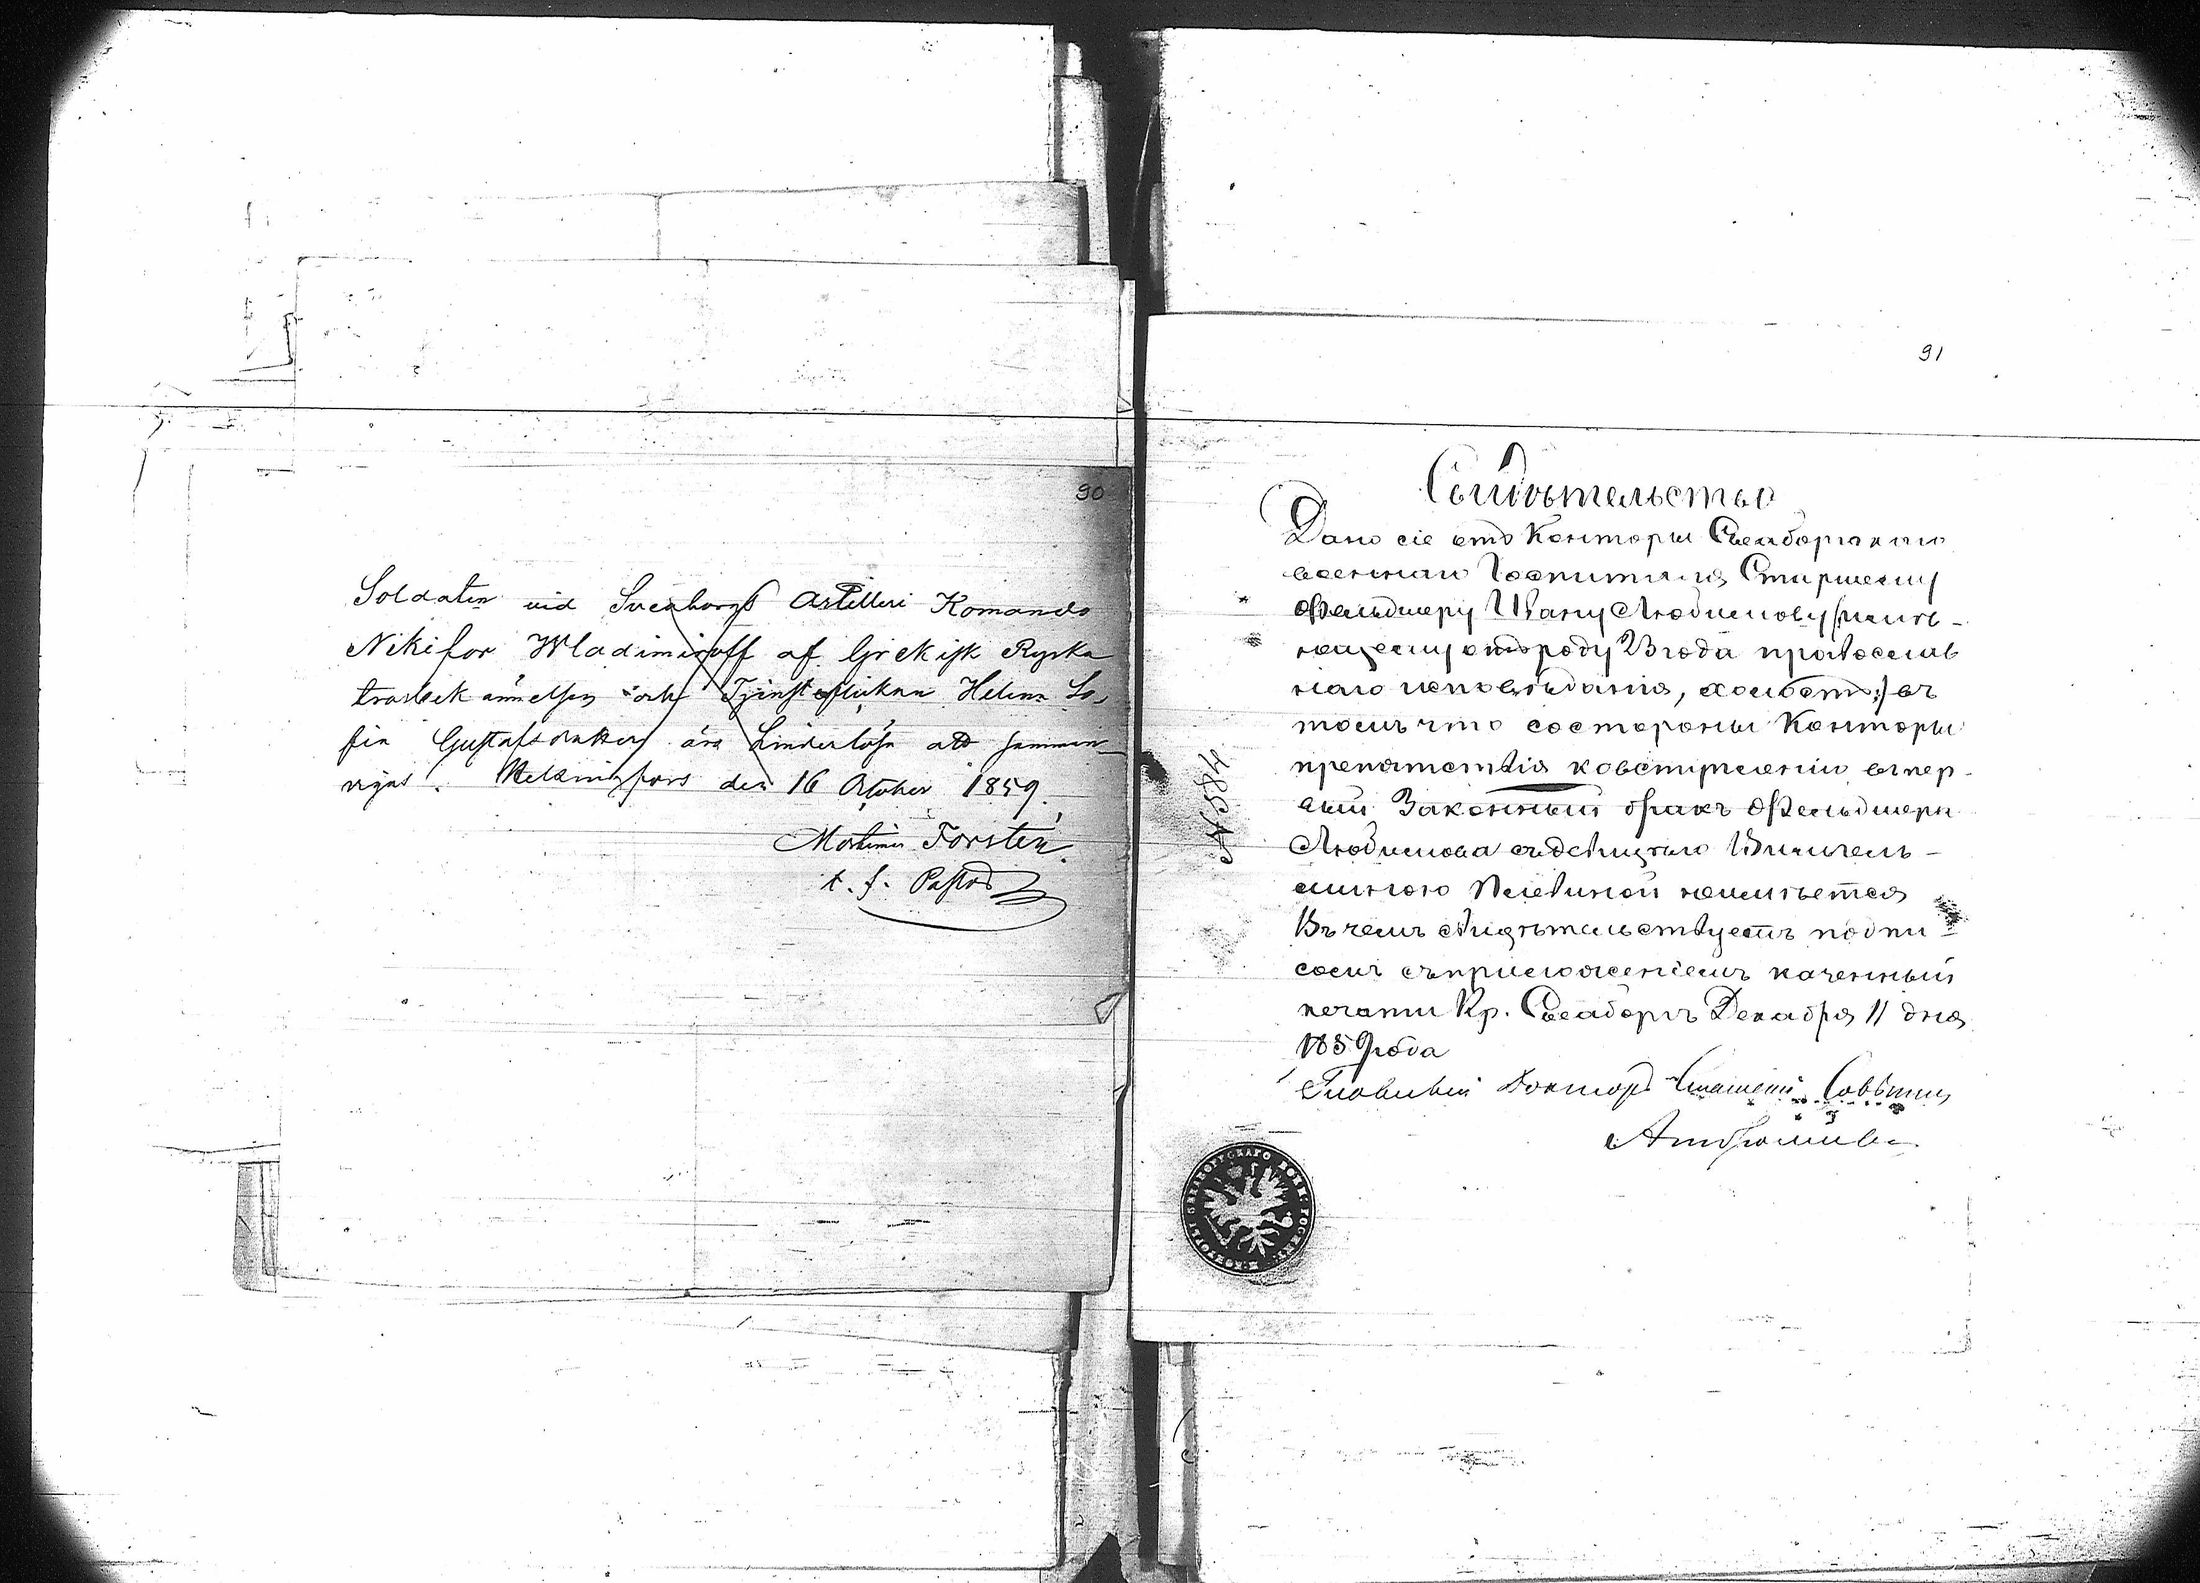 90
Soldaten vid Sveaborgs Artilleri Komando
Nikifor Wladimiroff af Grekisk Ryska
trosbekännelsen och Tjensteflickan Helena So-
fia Gustafsdotter äro hinderlösa att samman-
vigas. Helsingfors den 16 October 1859.
Mortimer Forstén
t. f. Pastor
91
Свидѣтельство
Дано сіе отъ Конторы Свеаборгскаго
военнаго Госпиталя Старшему
Фельдшеру Ивану Любимову /имѣ-
ющему отъ роду 23 года православ
наго исповѣданія, холостъ:/ въ
томъ что состороны Конторы
препятствія ковступленію впер-
вый Законный бракъ Фельдшера
Любимова съ дѣвицею Вильгель-
миною неимѣется
Въ чемъ свидѣтельствуетъ подпи-
сомъ съприложеніемъ казенный
печати Кр. Свеаборгъ Декабря 11 дня
1859 года
Главный Докторъ Статскій Совѣтникъ
№ 584
КОНТОРЫ СВЕАБОРГСКАГО ВОЕН: ГОСПИТ: